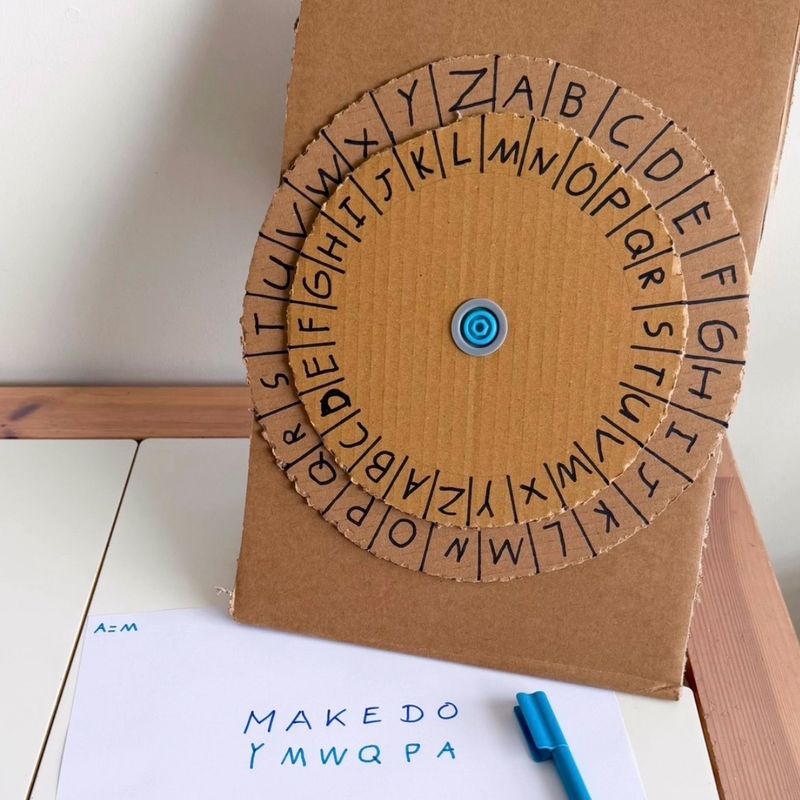 A B C D E F G H I J K L M N O P Q R S T U V W X Y Z
M N O P Q R S T U V W X Y Z A B C D E F G H I J K L
A=M
MAKEDO
YMWQPA